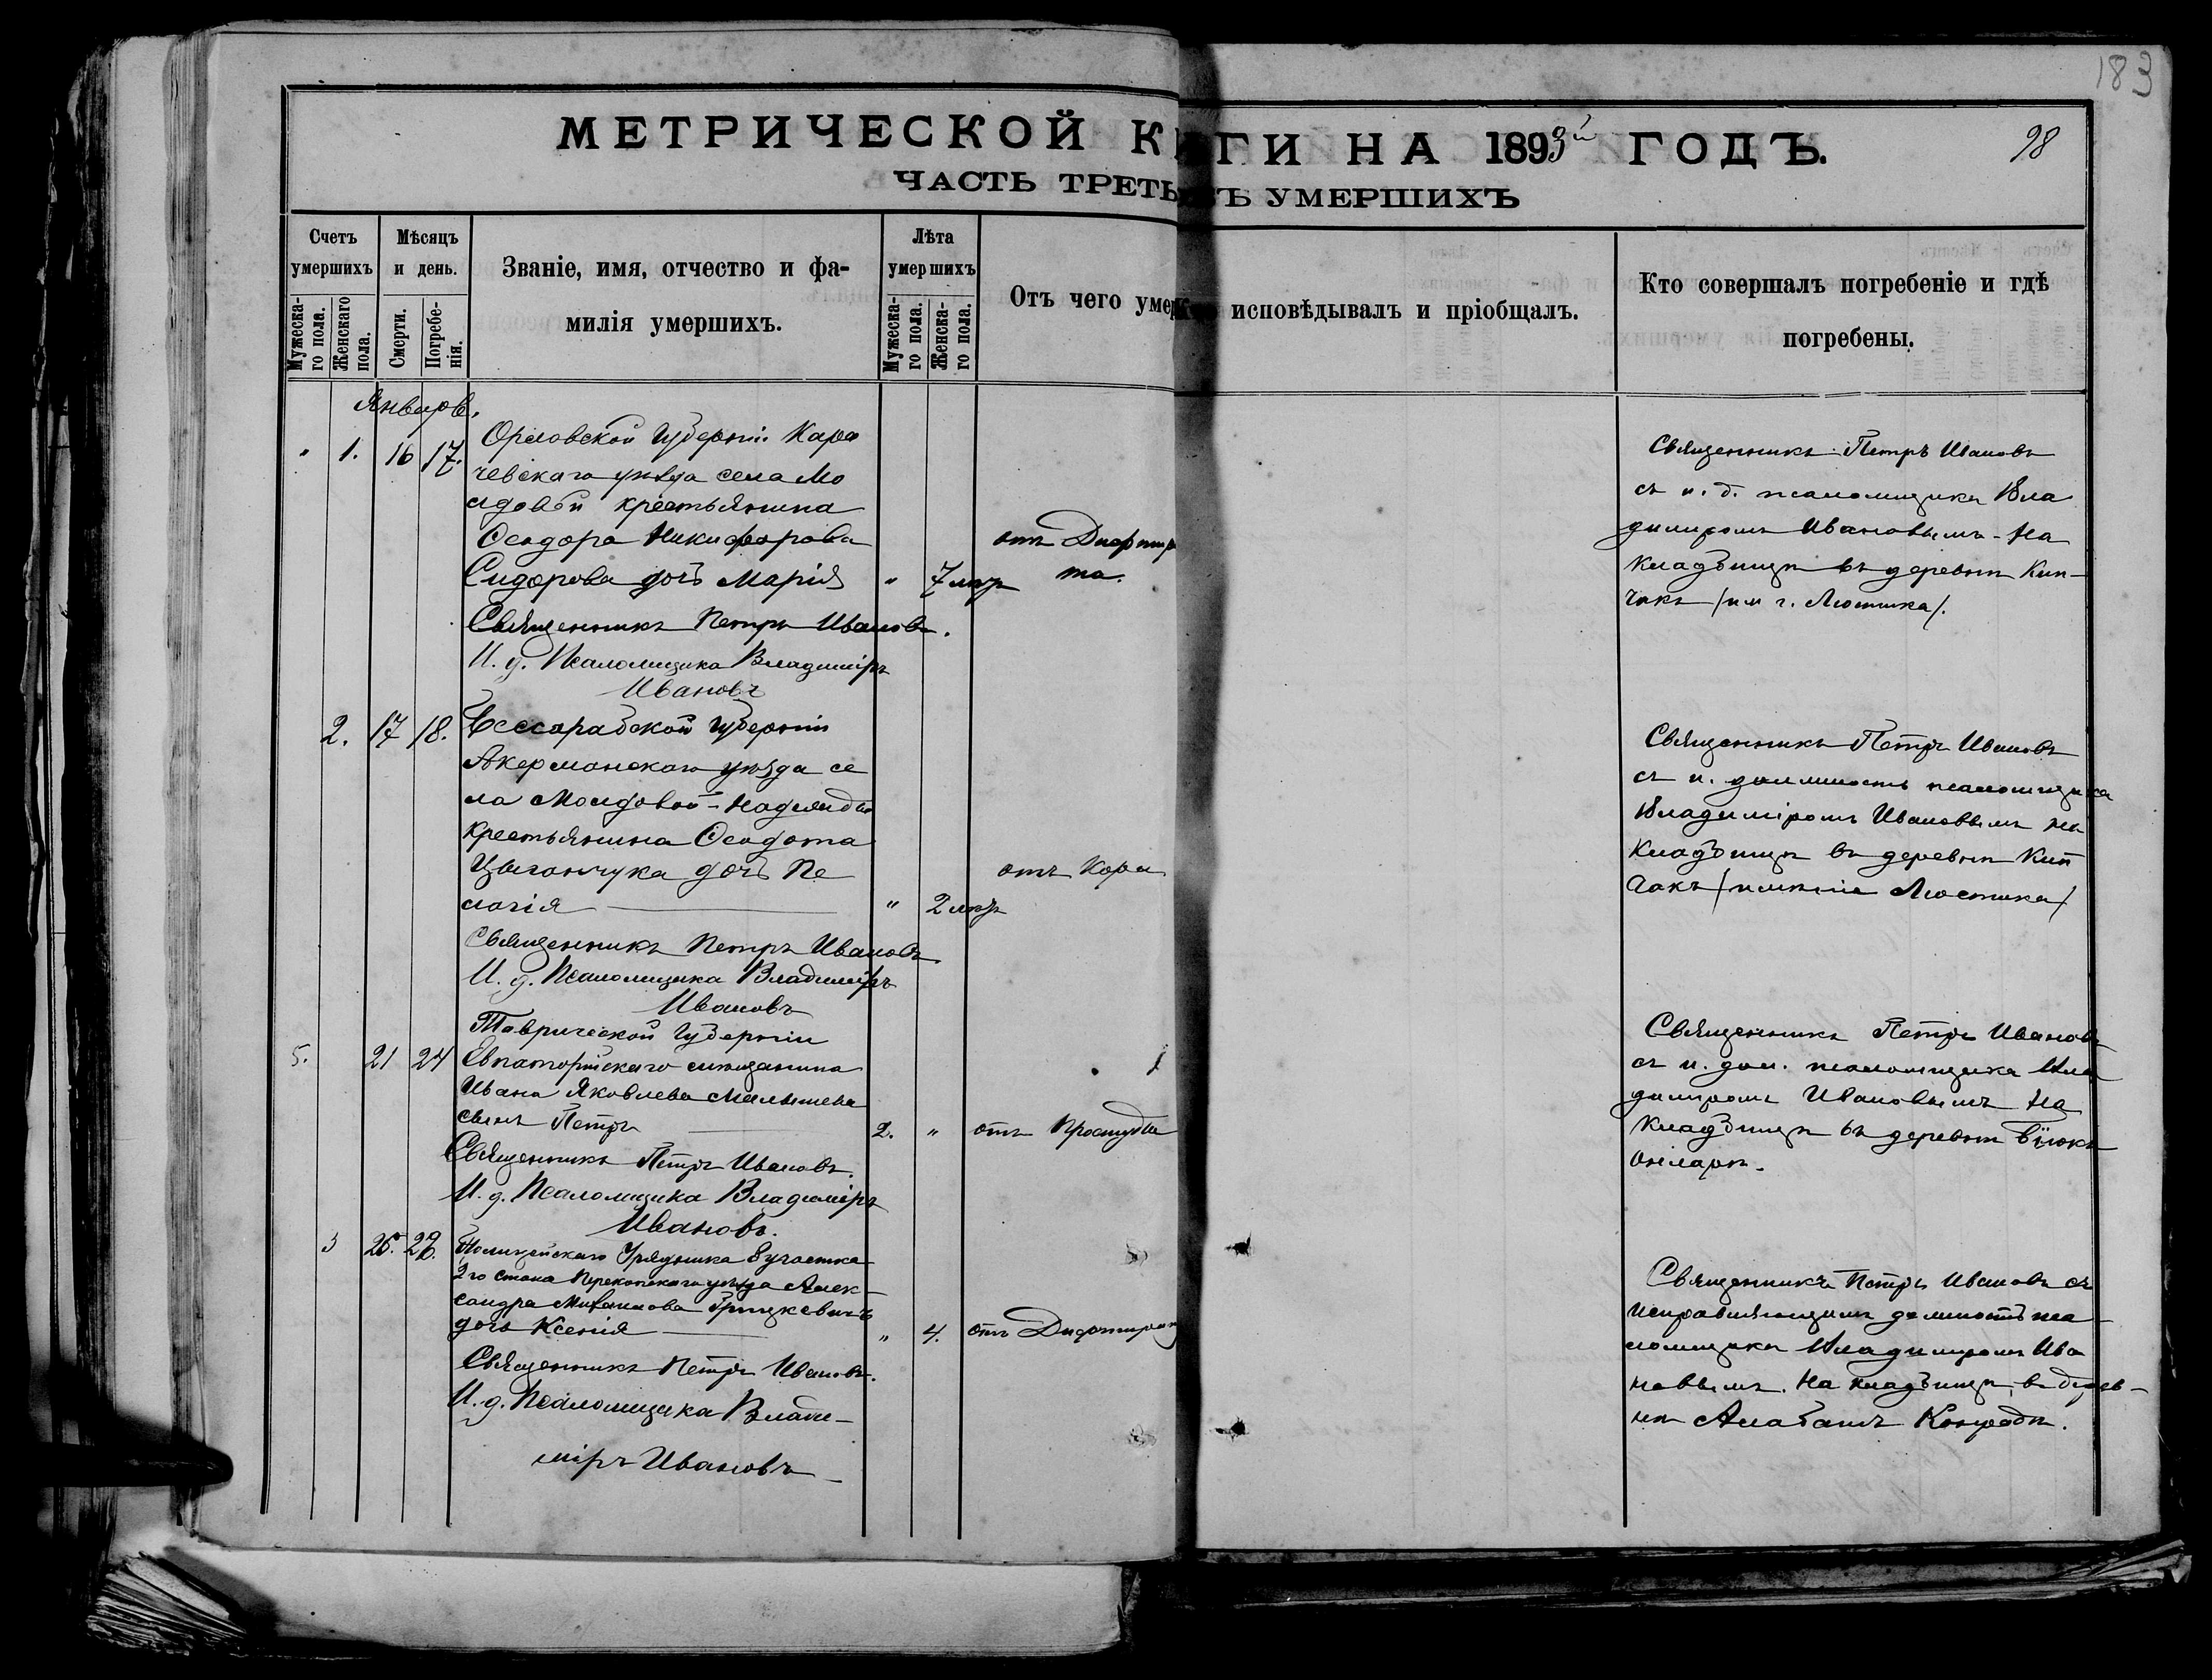 183
МЕТРИЧЕСКОЙ К ГИ НА 1893й ГОДЪ.
98
ЧАСТЬ ТРЕТЬ Ъ УМЕРШИХЪ
Счетъ умершихъ
Мужеска-го пола.
Женскаго пола.
Мѣсяцъ и день.
Смерти.
Погребе-нія.
Званіе, имя, отчество и фа-
милія умершихъ.
Лѣта умершихъ
Мужеска-го пола.
Женска-го пола.
Отъ чего умер
исповѣдывалъ и пріобщалъ.
Кто совершалъ погребеніе и гдѣ
погребены.
Январь.
" 1. 16 17.
Орловской Губерніи Кара
чевскаго уѣзда села Мо
лдовой крестьянина
Ѳеодора Никифорова
Сидорова дочь Марія
" 7 лѣтъ
отъ Дифтер
та.
Священникъ Петръ Ивановъ.
И. д. Псаломщика Владиміръ
Ивановъ
Священникъ Петръ Ивановъ
съ и. д. псаломщика Вла
димиромъ Ивановымъ - На
кладбищѣ въ деревнѣ Кип-
чакъ /им г. Люстиха/.
2. 17 18.
Бессарабской Губерніи
Акерманскаго уѣзда се
ла Молдовой-Надежды
крестьянина Ѳеодота
Цыганчука дочь Пе
лагія
" 2 лѣтъ
отъ Кори
Священникъ Петръ Ивановъ
И. д. Псаломщика Владиміръ
Ивановъ
Священникъ Петръ Ивановъ
съ и. должность псаломщика
Владиміромъ Ивановымъ на
кладбищѣ въ деревнѣ Кип
чакъ /имѣніе Люстиха/
5. 21 24
Таврической Губерніи
Евпаторійскаго мѣщанина
Ивана Яковлева Малышева
сынъ Петръ
2. "
отъ Простуды
Священникъ Петръ Ивановъ.
И. д. Псаломщика Владиміръ
Ивановъ.
Священникъ Петръ Ивановъ
съ и. дол. псаломщика Вла
димиромъ Ивановымъ На
кладбищѣ въ деревнѣ Біюкъ
Онларъ.
3 25. 26.
Полицейскаго Урядника 8 участка
2го стана Перекопскаго уѣзда Алек-
сандра Михаилова Грицкевичъ
дочь Ксенія
" 4.
отъ Дифтерит
Священникъ Петръ Ивановъ.
И. д. Псаломщика Влади-
міръ Ивановъ
Священникъ Петръ Ивановъ съ
исправляющимъ должность пса
ломщика Владимиромъ Ива
новымъ. На кладбищѣ, въ дерев-
нѣ Алабашъ Конратъ.